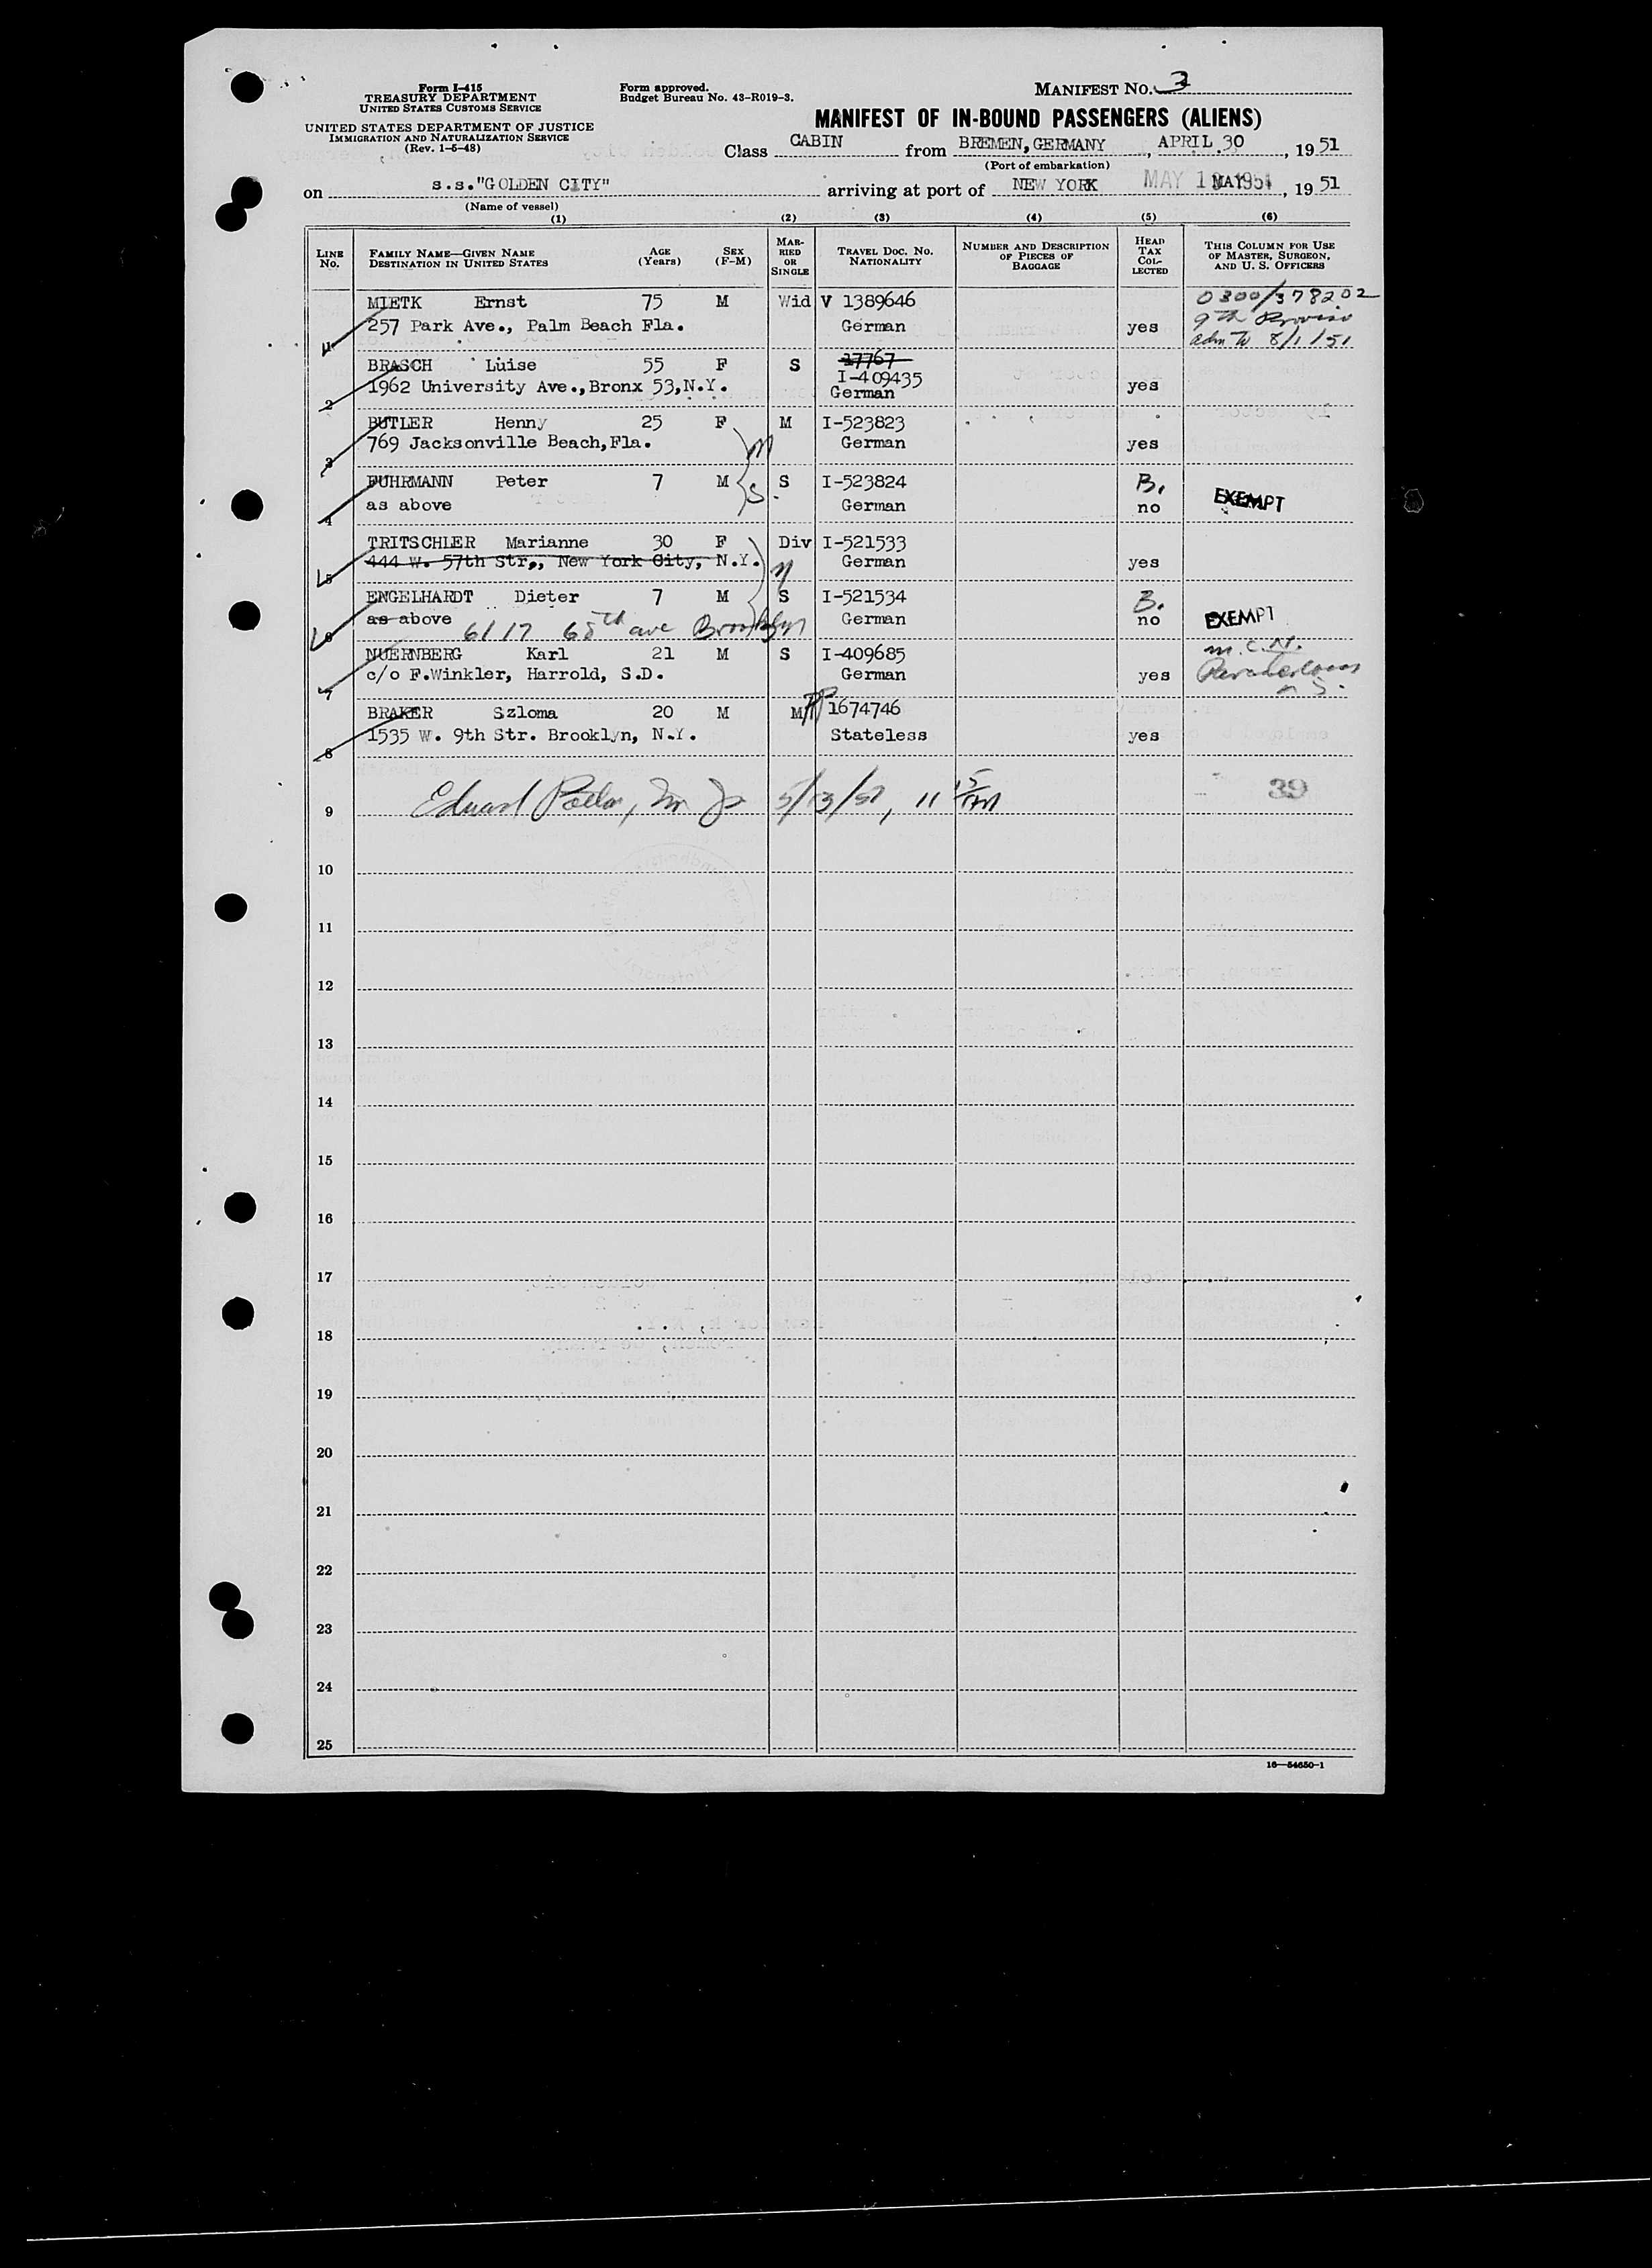 Form I-415
TREASURY DEPARTMENT
UNITED STATES CUSTOMS SERVICE
UNITED STATES DEPARTMENT OF JUSTICE
IMMIGRATION AND NATURALIZATION SERVICE
(Rev. 1-5-48)
Form approved.
Budget Bureau No. 43-R019-3.
MANIFEST NO. 3
MANIFEST OF IN-BOUND PASSENGERS (ALIENS)
Class CABIN from BREMEN, GERMANY, APRIL 30, 19 51
(Port of embarkation)
on s.s."GOLDEN CITY" arriving at port of NEW YORK MAY 1951, 19 51
(Name of vessel)
(1) (2) (3) (4) (5) (6)
LINE No. FAMILY NAME—GIVEN NAME DESTINATION IN UNITED STATES AGE (Years) SEX (F-M) MARRIED OR SINGLE TRAVEL DOC. NO. NATIONALITY NUMBER AND DESCRIPTION OF PIECES OF BAGGAGE HEAD TAX COLLECTED THIS COLUMN FOR USE OF MASTER, SURGEON, AND U. S. OFFICERS
MIETK Ernst 75 M Wid V 1389646 0300/378202
257 Park Ave., Palm Beach Fla. German yes 9th Proviso
1 adm to 8/1/51
BRASCH Luise 55 F S 17767
I-409435
1962 University Ave.,Bronx 53,N.Y. German yes
2
BUTLER Henny 25 F M I-523823
769 Jacksonville Beach,Fla. German yes
3 m
FUHRMANN Peter 7 M S. S I-523824 B. EXEMPT
as above German no
4
TRITSCHLER Marianne 30 F Div I-521533
444 W. 57th Str., New York City, N.Y. German yes
5
ENGELHARDT Dieter 7 M S I-521534 B. EXEMPT
as above 6117 68th ave Brooklyn German no
6
NUERNBERG Karl 21 M S I-409685 m.C.N.
c/o F.Winkler, Harrold, S.D. German yes
7
BRAKER Szloma 20 M M 1674746
1535 W. 9th Str. Brooklyn, N.Y. Stateless yes
8
9 Edward 5/13/51, 11 15 AM 39
10
11
12
13
14
15
16
17
18
19
20
21
22
23
24
25
16—54650-1